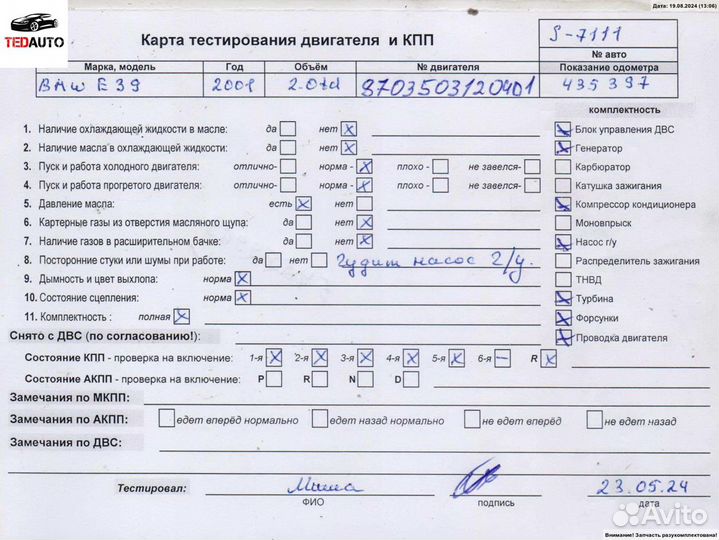 Дата: 19.08.2024 (13:06)
TEDAUTO
Карта тестирования двигателя и КПП
S-7111
№ авто
Марка, модель Год Объём № двигателя Показание одометра
BMW E39 2001 2.0td 8703503120401 435 397
комплектность
1. Наличие охлаждающей жидкости в масле: да нет X
Блок управления ДВС
2. Наличие масла в охлаждающей жидкости: да нет X
Генератор
3. Пуск и работа холодного двигателя: отлично- норма - X плохо - не завелся-
Карбюратор
4. Пуск и работа прогретого двигателя: отлично- норма - X плохо - не завелся-
Катушка зажигания
5. Давление масла: есть X нет
Компрессор кондиционера
6. Картерные газы из отверстия масляного щупа: да нет X
Моновпрыск
7. Наличие газов в расширительном бачке: да нет X
Насос г/у
8. Посторонние стуки или шумы при работе: да нет Гудит насос г/у.
Распределитель зажигания
9. Дымность и цвет выхлопа: норма X
ТНВД
10. Состояние сцепления: норма X
Турбина
11. Комплектность : полная X
Форсунки
Снято с ДВС (по согласованию!):
Проводка двигателя
Состояние КПП - проверка на включение: 1-я X 2-я X 3-я X 4-я X 5-я X 6-я — R X
Состояние АКПП - проверка на включение: P R N D
Замечания по МКПП:
Замечания по АКПП: едет вперёд нормально едет назад нормально не едет вперёд не едет назад
Замечания по ДВС:
Тестировал: Миша 23.05.24
ФИО подпись дата
Avito
Внимание! Запчасть разукомплектована!